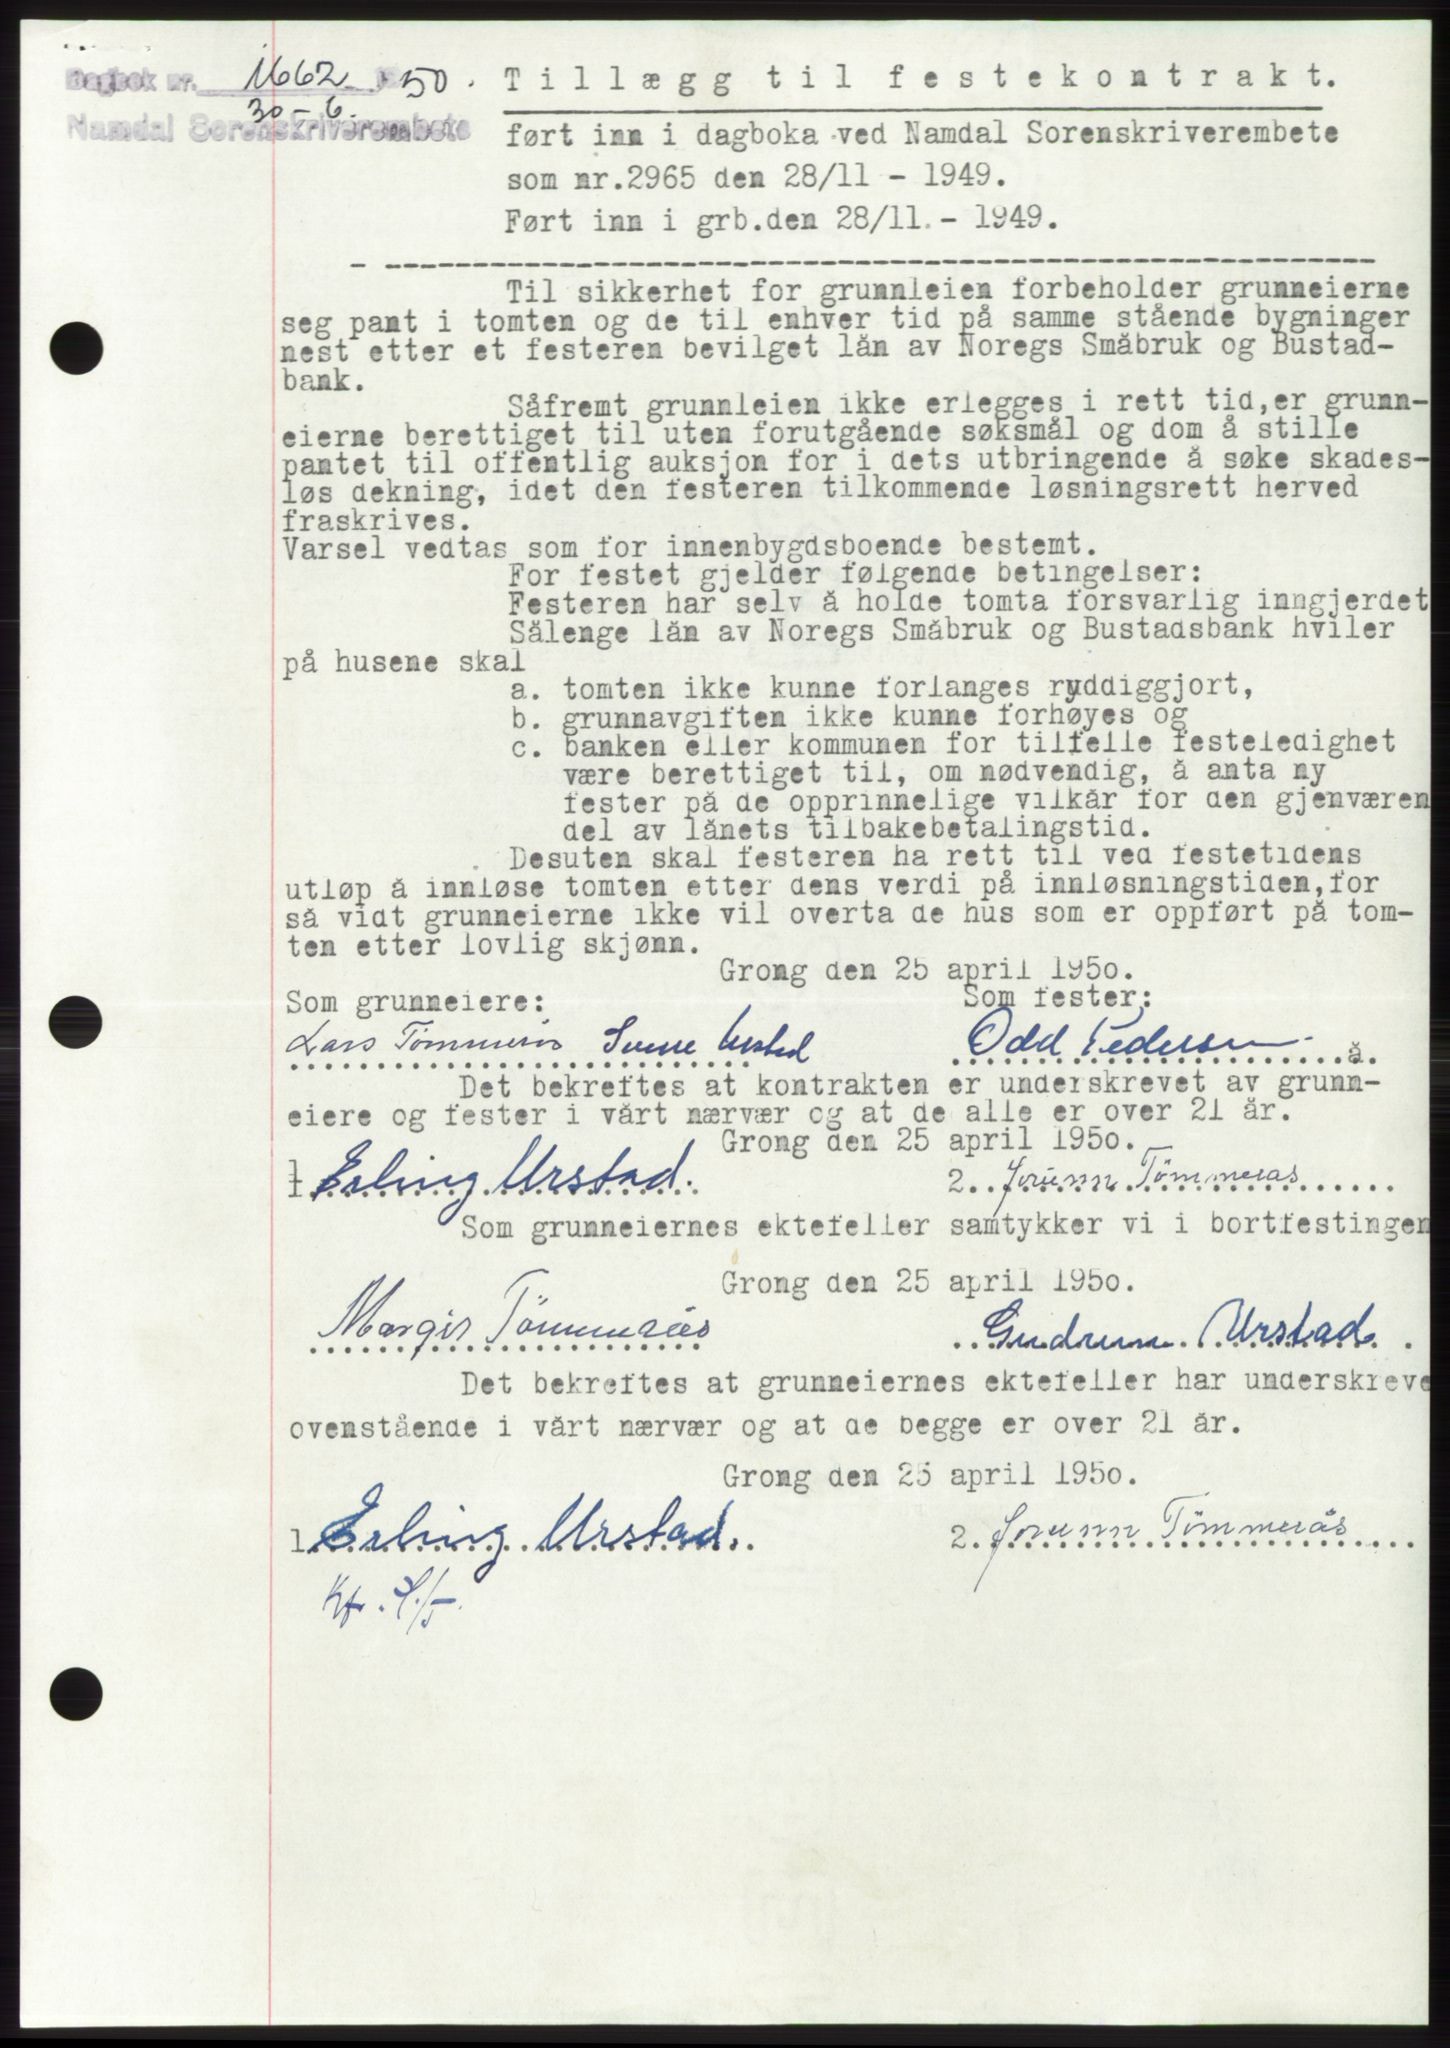 Dagbok nr. 1662 1950.
30-6.
Namdal Sorenskriverembete
Tillægg til festekontrakt.
ført inn i dagboka ved Namdal Sorenskriverembete
som nr.2965 den 28/11 - 1949.
Ført inn i grb.den 28/11.- 1949.
Til sikkerhet for grunnleien forbeholder grunneierne
seg pant i tomten og de til enhver tid på samme stående bygninger
nest etter et festeren bevilget lån av Noregs Småbruk og Bustad-
bank.
Såfremt grunnleien ikke erlegges i rett tid,er grunn-
eierne berettiget til uten forutgående søksmål og dom å stille
pantet til offentlig auksjon for i dets utbringende å søke skades-
løs dekning, idet den festeren tilkommende løsningsrett herved
fraskrives.
Varsel vedtas som for innenbygdsboende bestemt.
For festet gjelder følgende betingelser:
Festeren har selv å holde tomta forsvarlig inngjerdet
Sålenge lån av Noregs Småbruk og Bustadsbank hviler
på husene skal
a. tomten ikke kunne forlanges ryddiggjort,
b. grunnavgiften ikke kunne forhøyes og
c. banken eller kommunen for tilfelle festeledighet
være berettiget til, om nødvendig, å anta ny
fester på de opprinnelige vilkår for den gjenværen
del av lånets tilbakebetalingstid.
Desuten skal festeren ha rett til ved festetidens
utløp å innløse tomten etter dens verdi på innløsningstiden,for
så vidt grunneierne ikke vil overta de hus som er oppført på tom-
ten etter lovlig skjønn.
Grong den 25 april 1950.
Som grunneiere: Som fester:
Lars Tömmerås Sverre Urstad Odd Pedersen å.
Det bekreftes at kontrakten er underskrevet av grunn-
eiere og fester i vårt nærvær og at de alle er over 21 år.
Grong den 25 april 1950.
1 Erling Urstad. 2. Jorunn Tömmerås
Som grunneiernes ektefeller samtykker vi i bortfestingen
Grong den 25 april 1950.
Margit Tömmerås Gudrun Urstad
Det bekreftes at grunneiernes ektefeller har underskreve
ovenstående i vårt nærvær og at de begge er over 21 år.
Grong den 25 april 1950.
1. Erling Urstad. 2. Jorunn Tömmerås